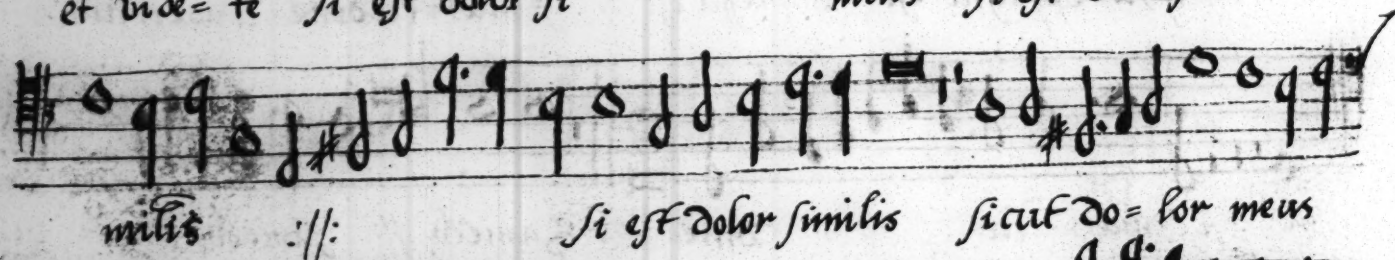 et vide= te si est dolor si
milis :||: si est dolor similis sicut do= lor meus